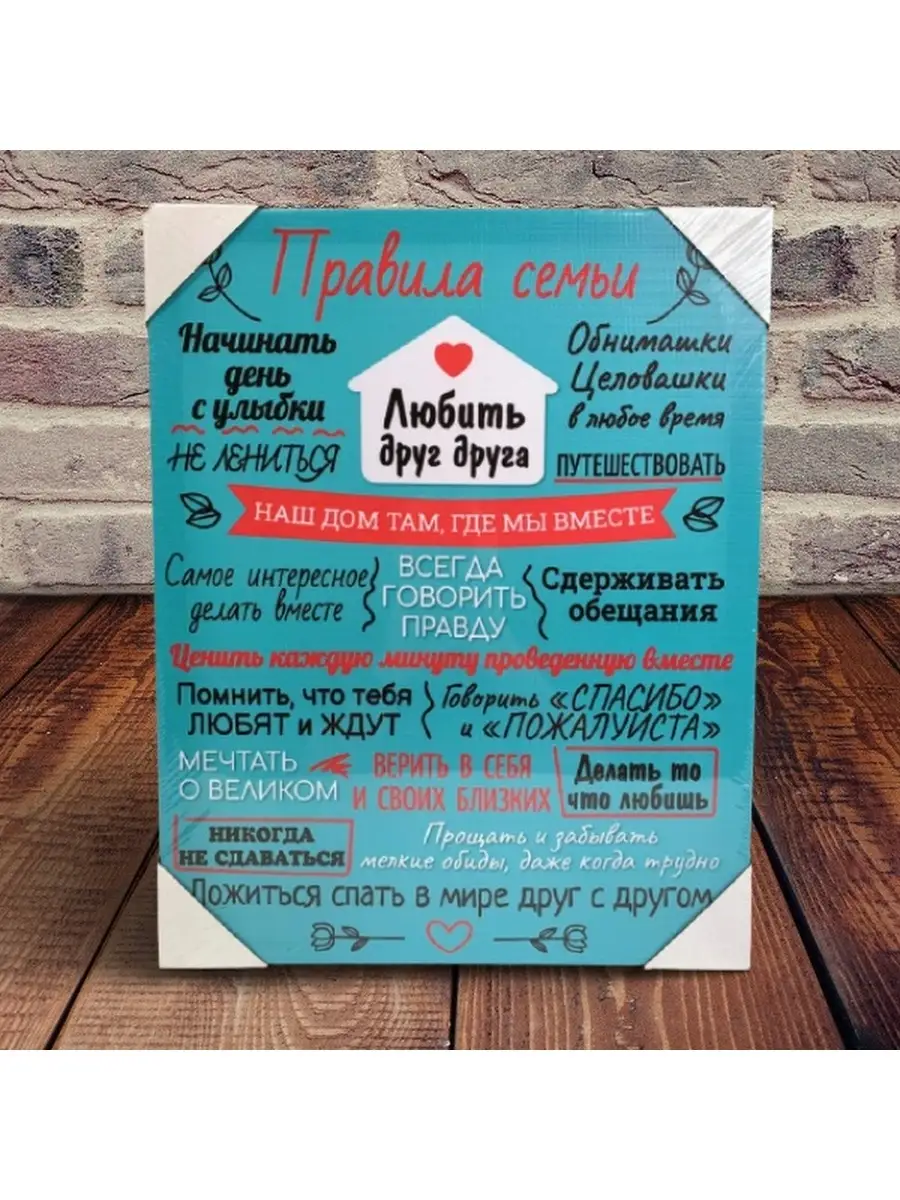 Правила семьи
Начинать
день
с улыбки
НЕ ЛЕНИТЬСЯ
Любить
друг друга
Обнимашки
Целовашки
в любое время
ПУТЕШЕСТВОВАТЬ
НАШ ДОМ ТАМ, ГДЕ МЫ ВМЕСТЕ
Самое интересное
делать вместе
ВСЕГДА
ГОВОРИТЬ
ПРАВДУ
Сдерживать
обещания
Ценить каждую минуту проведенную вместе
Помнить, что тебя
ЛЮБЯТ и ЖДУТ
Говорить «СПАСИБО»
и «ПОЖАЛУЙСТА»
МЕЧТАТЬ
О ВЕЛИКОМ
ВЕРИТЬ В СЕБЯ
И СВОИХ БЛИЗКИХ
Делать то
что любишь
НИКОГДА
НЕ СДАВАТЬСЯ
Прощать и забывать
мелкие обиды, даже когда трудно
Ложиться спать в мире друг с другом